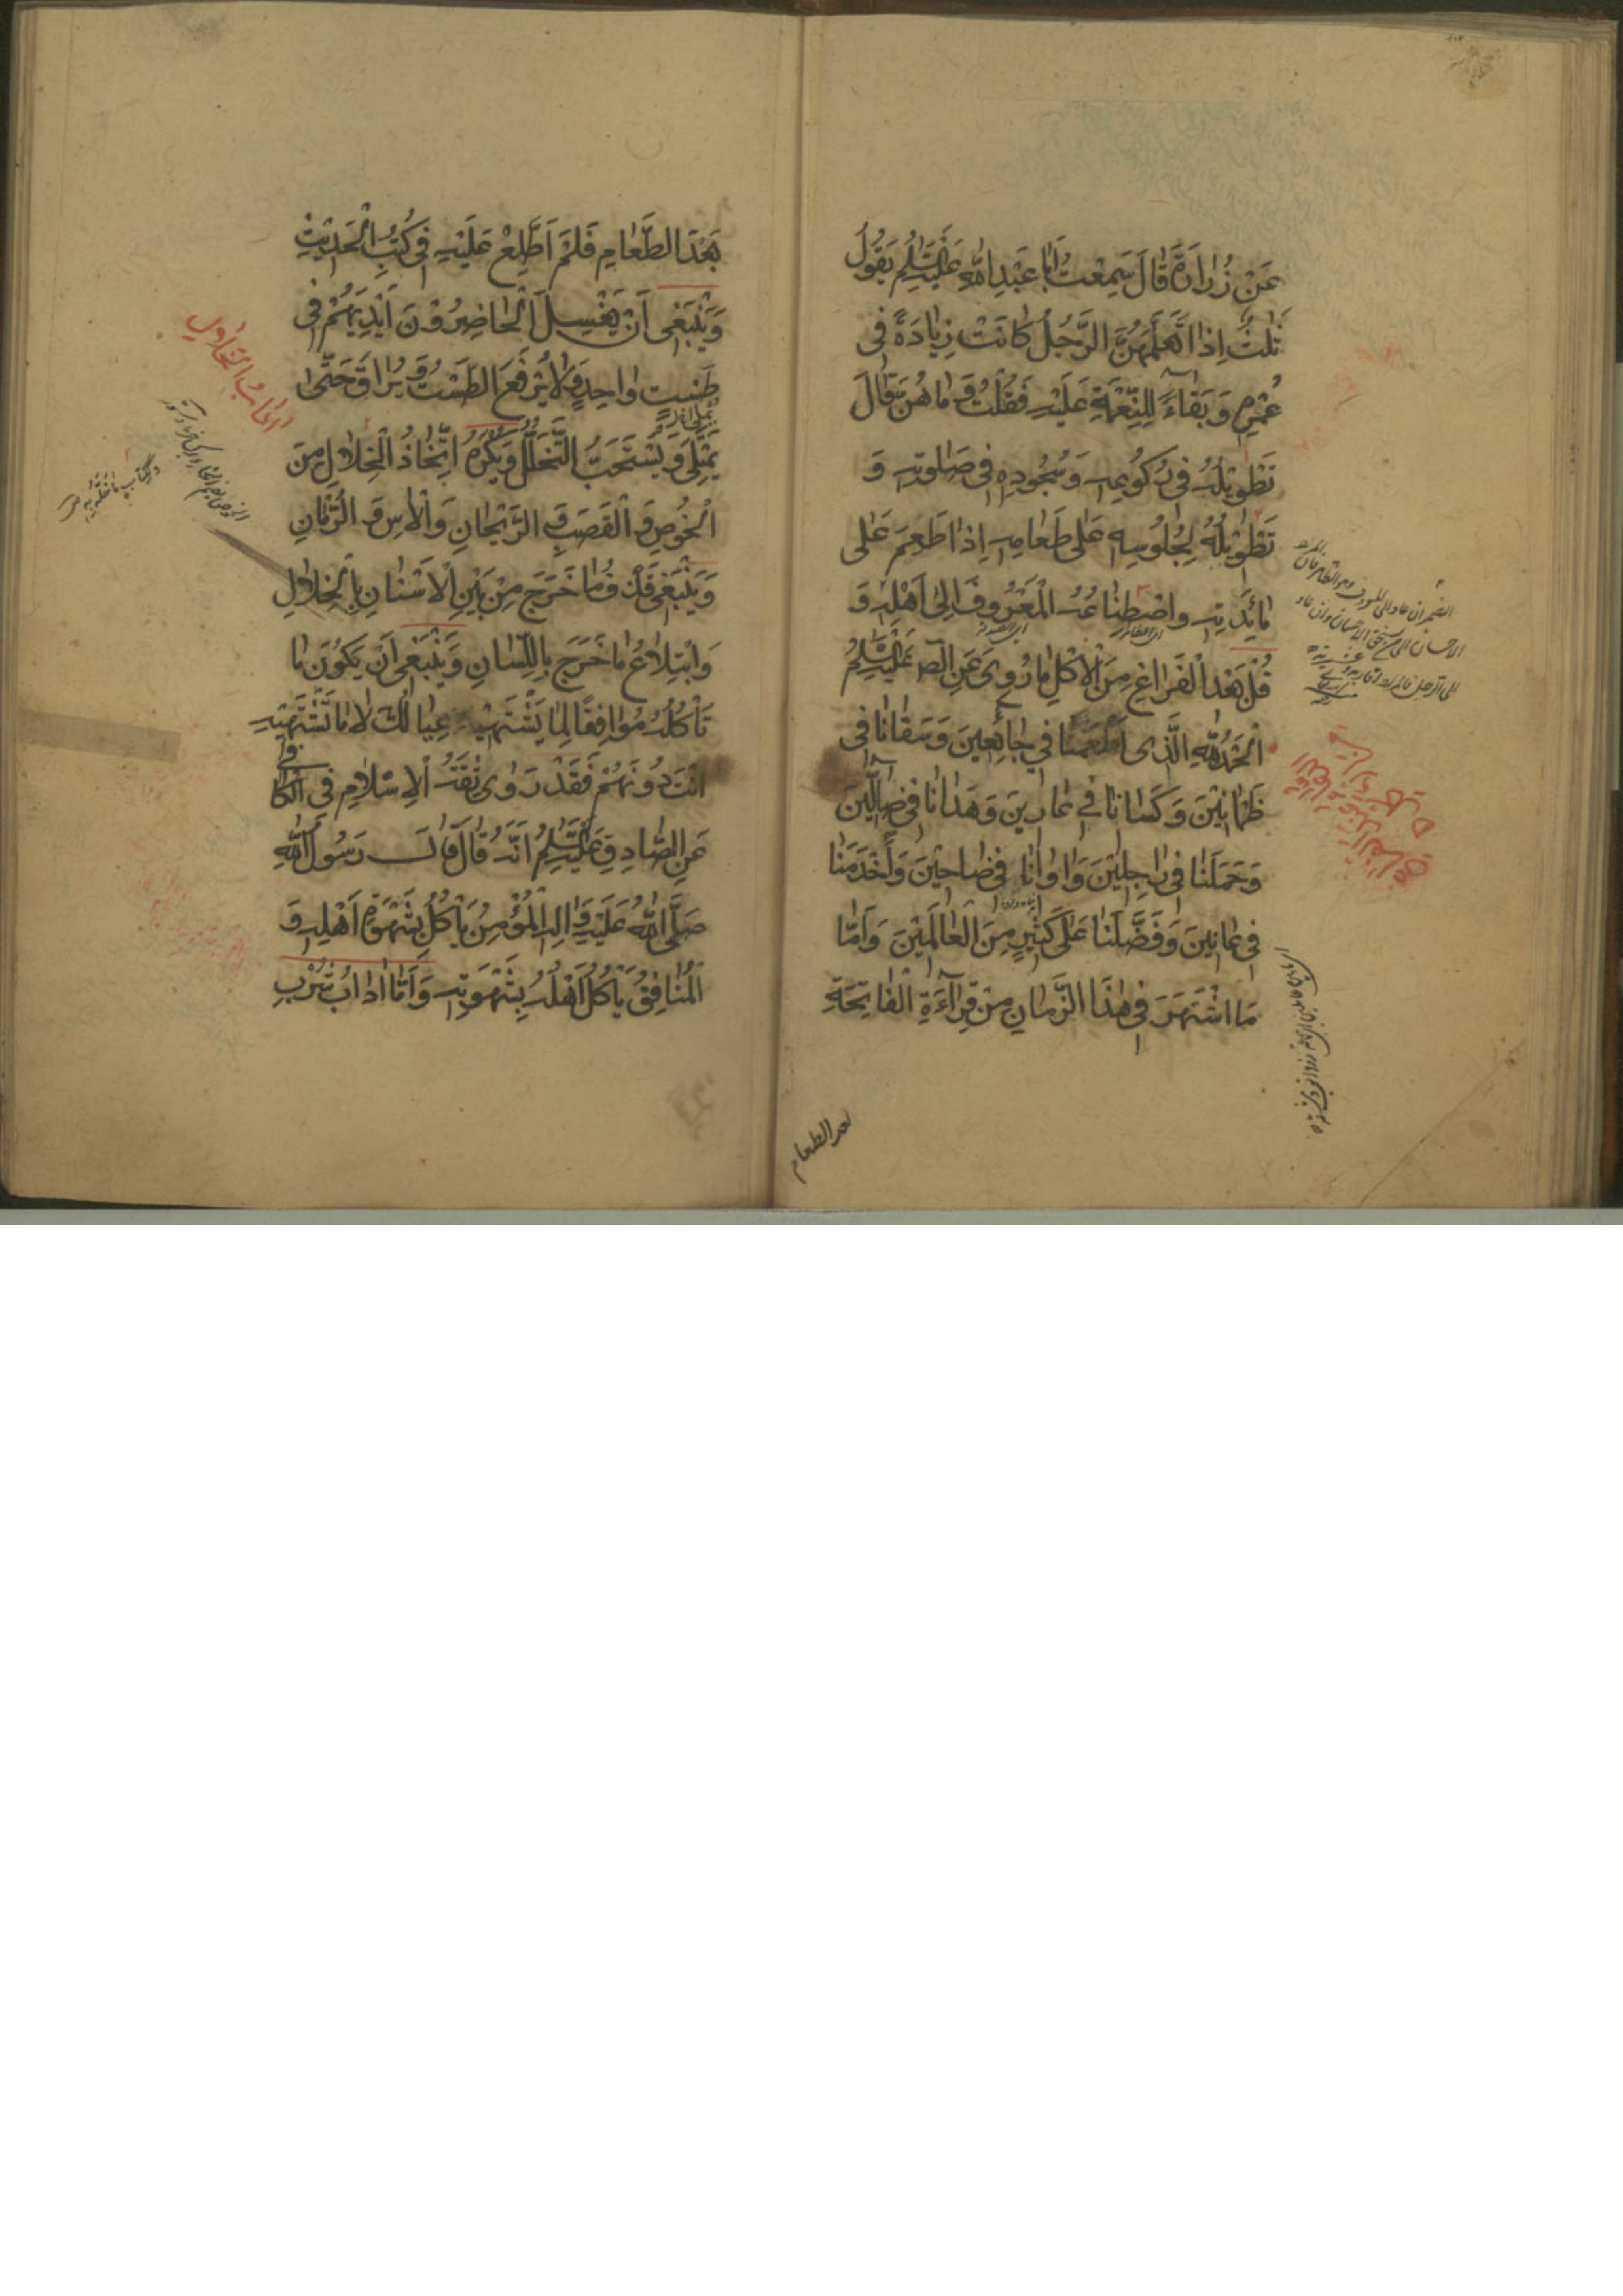 عَنْ زُرٰارَةَ قٰالَ سَمِعْتُ اَبٰا عَبْدِ اللّٰهِ عَلَيْهِ السَّلٰمُ يَقُولُ
ثَلٰثٌ اِذٰا تَعَلَّمَهُنَّ الرَّجُلُ كٰانَتْ زِيٰادَةً فِى
عُمْرِهِ وَ بَقٰاءً لِلنِّعْمَةِ عَلَيْهِ فَقُلْتُ وَ مٰا هُنَّ قٰالَ
تَطْوِيْلُهُ فِى رُكُوعِهِ وَ سُجُودِهِ فِى صَلٰوتِهِ وَ
تَطْوِيْلُهُ لِجُلُوسِهِ عَلٰى طَعٰامِهِ اِذٰا طَعِمَ عَلٰى
مٰائِدَتِهِ وَ اصْطِنٰاعُهُ الْمَعْرُوفَ اِلٰى اَهْلِهِ وَ
قُلْ بَعْدَ الْفَرٰاغِ مِنَ الْاَكْلِ مٰا رُوِىَ عَنِ الص عَلَيْهِ السَّلٰمُ
اَلْحَمْدُ لِلّٰهِ الَّذِى اَطْعَمَنٰا فِي جٰائِعِينَ وَ سَقٰانٰا فِى
ظَمْاٰنِيْنَ وَ كَسٰانٰا فِي عٰارِينَ وَ هَدٰانٰا فِى ضٰالِّينَ
وَ حَمَلَنٰا فِى رٰاجِلِيْنَ وَ اٰوٰانٰا فِى ضٰاحِيْنَ وَ اَخْدَمَنٰا
فِى عٰانِينَ وَ فَضَّلَنٰا عَلٰى كَثِيْرٍ مِنَ الْعٰالَمِيْنَ وَ اَمّٰا
مَا اشْتَهَرَ فِى هٰذَا الزَّمٰانِ مِنْ قِرٰآءَةِ الْفٰاتِحَةِ
بعد الطعام
بَعْدَ الطَّعٰامِ فَلَمْ اَطَّلِعْ عَلَيْهِ فِى كُتُبِ الْحَدِيْثِ
وَ يَنْبَغِى اَنْ يَغْسِلَ الْحٰاضِرُوْنَ اَيْدِيَهُمْ فِى
طَسْتٍ وٰاحِدٍ وَ لٰا يُرْفَعَ الطَّسْتُ وَ يُرٰاقَ حَتّٰى
يَمْتَلِىَ وَ يُسْتَحَبُّ التَّخَلُّلُ وَ يُكْرَهُ اتِّخٰاذُ الْخِلٰالِ مِنَ
الْخُوصِ وَ الْقَصَبِ وَ الرَّيْحٰانِ وَ الْاٰسِ وَ الرُّمّٰانِ
وَ يَنْبَغِى قَذْفُ مٰا خَرَجَ مِنْ بَيْنِ الْاَسْنٰانِ بِالْخِلٰالِ
وَ ابْتِلٰاعُ مٰا خَرَجَ بِاللِّسٰانِ وَ يَنْبَغِى اَنْ يَكُوْنَ مٰا
تَأْكُلُهُ مُوٰافِقًا لِمٰا يَشْتَهِيْهِ عِيٰالُكَ لٰا مٰا تَشْتَهِيْهِ
اَنْتَ دُوْنَهُمْ فَقَدْ رَوٰى ثِقَةُ الْاِسْلٰامِ فِى الْكٰافِى
عَنِ الصّٰادِقِ عَلَيْهِ السَّلٰمُ اَنَّهُ قٰالَ قٰالَ رَسُولُ اللّٰهِ
صَلَّى اللّٰهُ عَلَيْهِ وَ اٰلِهِ الْمُؤْمِنُ يَأْكُلُ بِشَهْوَةِ اَهْلِهِ وَ
الْمُنٰافِقُ يَأْكُلُ اَهْلُهُ بِشَهْوَتِهِ وَ اَمّٰا اٰدٰابُ شُرْبِ